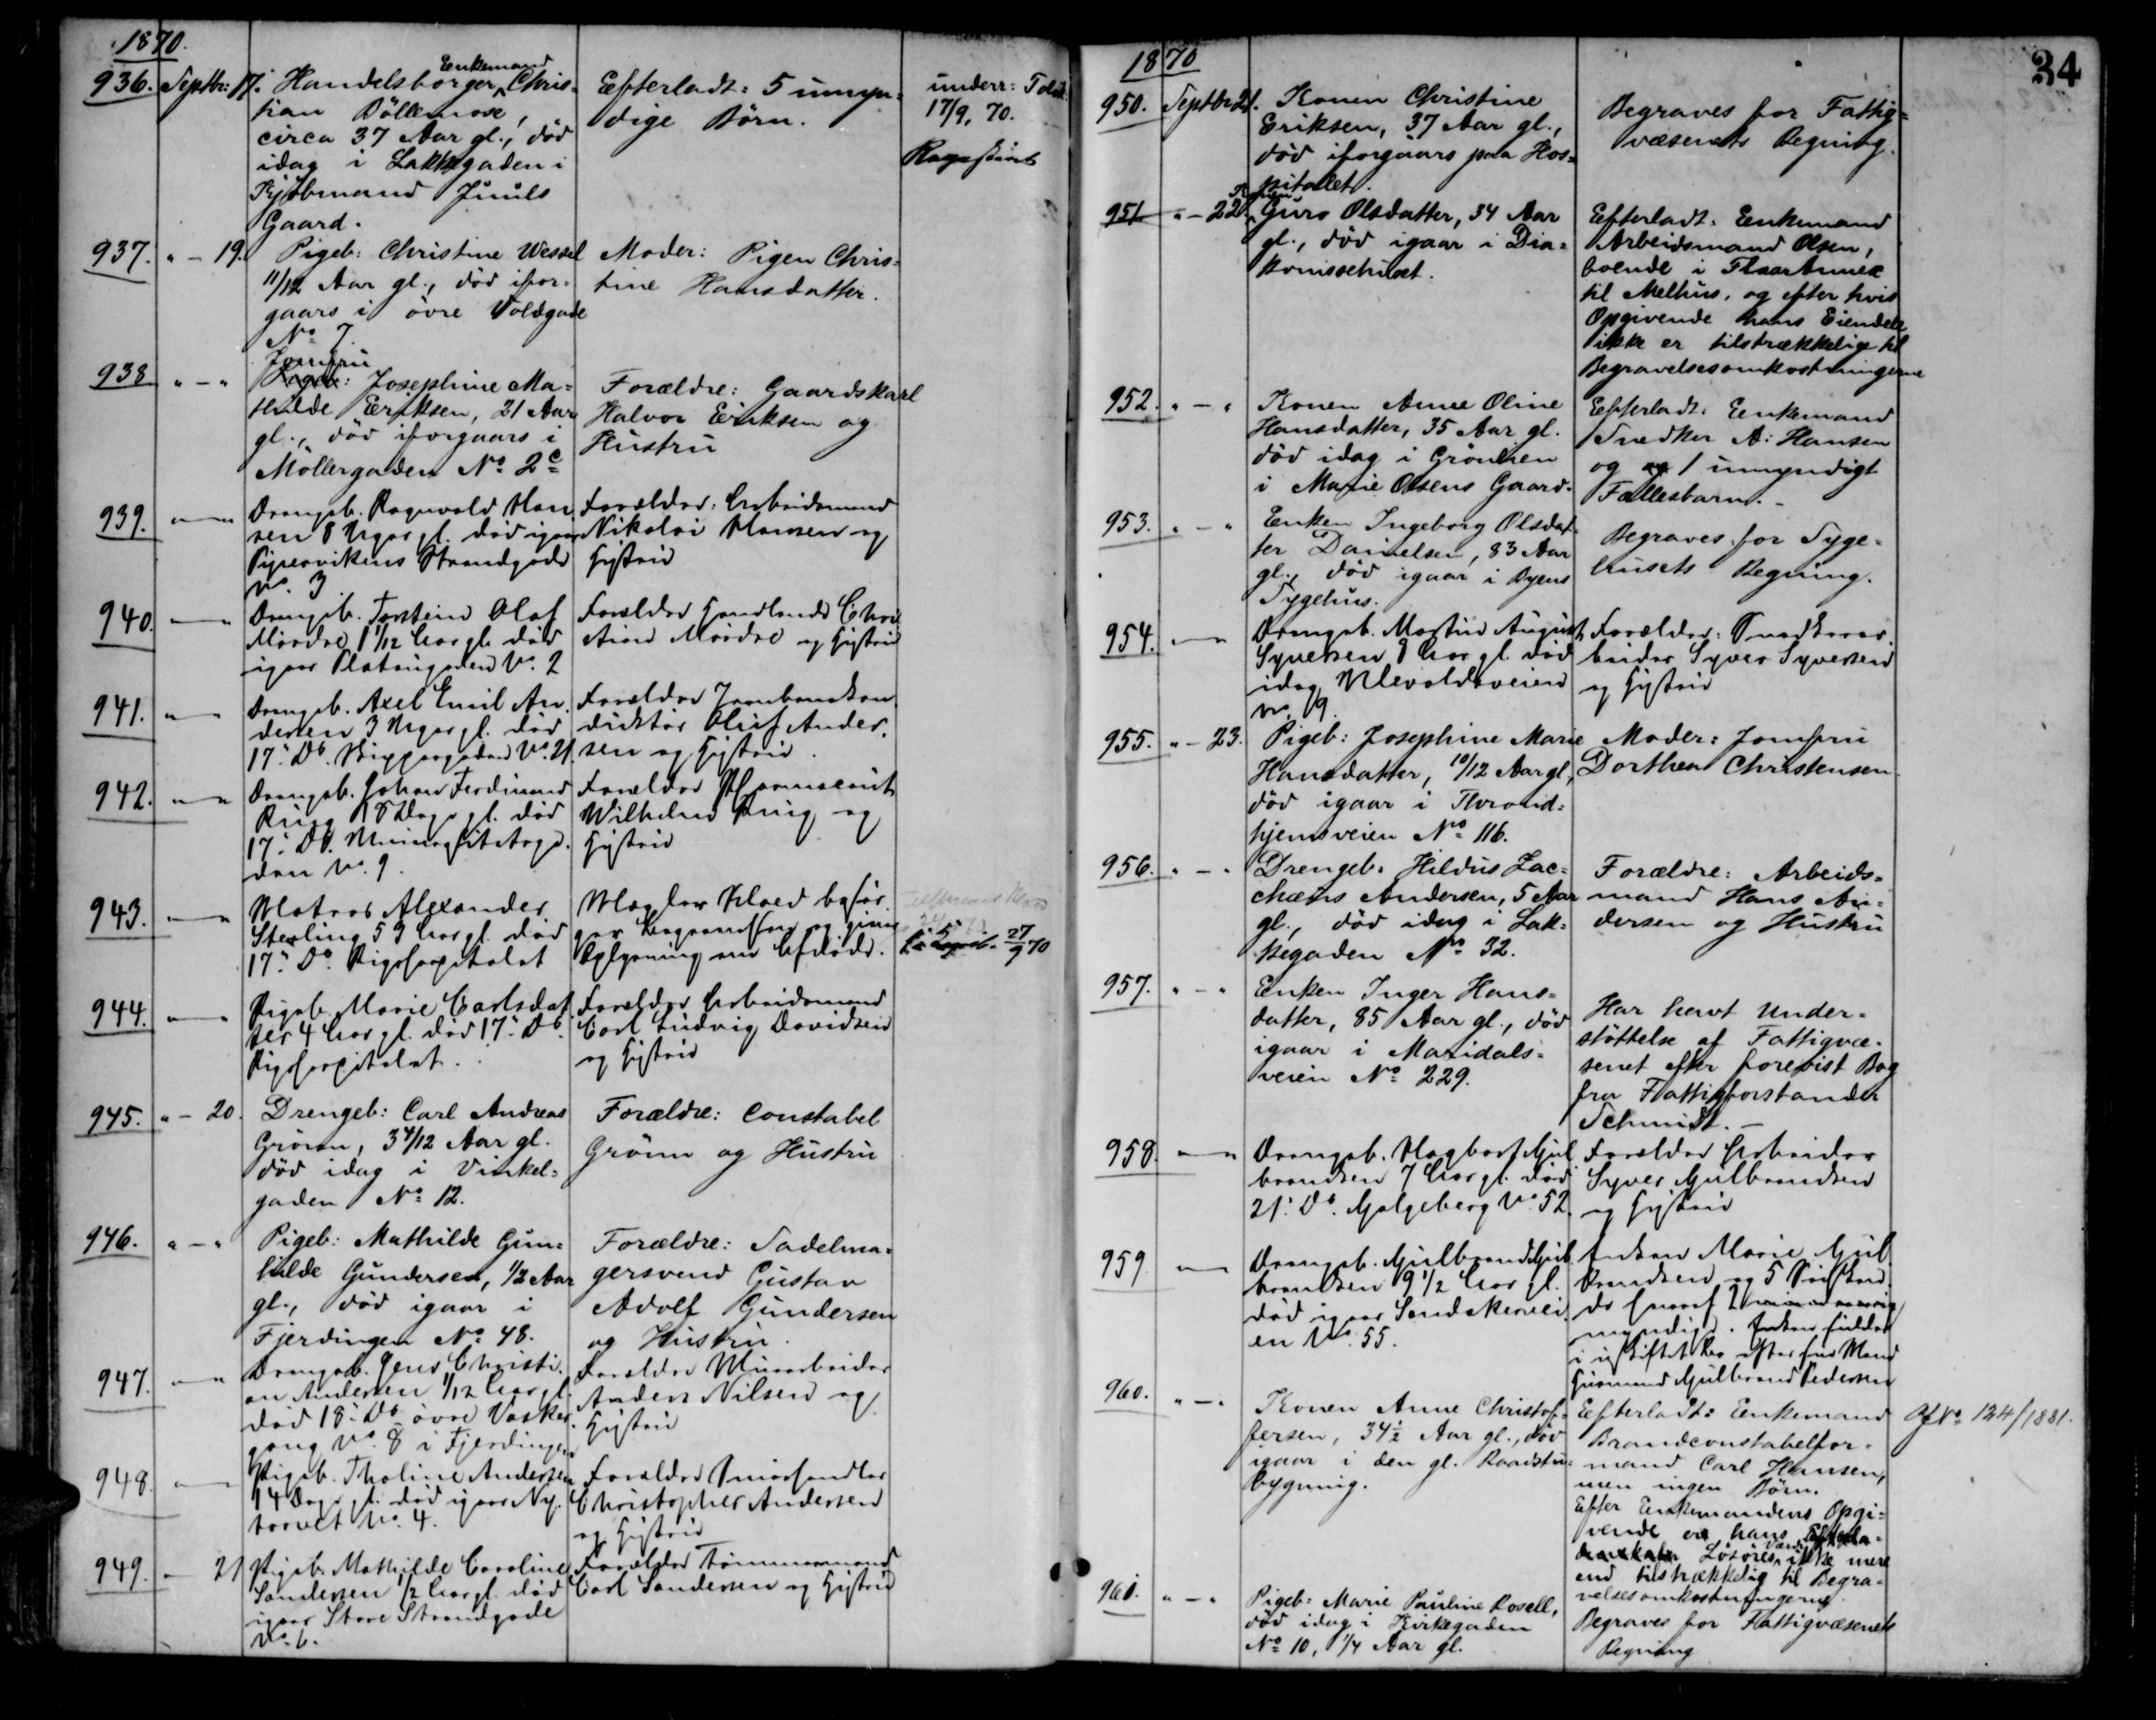 1870.
936. Septbr: 17. Handelsborger Enkemand Chris-
tian Döllemose,
circa 37 Aar gl., död
idag i Lakkegaden i
Kjöbmand Juuls
Gaard.
Efterladt: 5 umyn-
dige Börn.
underr: Told
17/9. 70.
937. " - 19. Pigeb: Christine Wessel
11/12 Aar gl., död ifor-
gaars i övre Voldgade
No 7.
Moder: Pigen Chris-
tine Hansdatter.
938 " - " Jomfru
Pigeb: Josephine Ma-
thilde Eriksen, 21 Aar
gl., död iforgaars i
Möllergaden No 2c
Forældre: Gaardskarl
Halvor Eriksen og
Hustru
939. " - " Drengeb. Ragnvald Han
sen 8 Uger gl. död igaar
Pipervikens Strandgade
No. 3
Forældre: Arbeidsmand
Nikolai Hansen og
Hustru
940. " - " Drengeb. Torstein Olaf
Mördre 1 1/12 Aar gl. död
igaar Platougaden No. 2
Forældre Handlende Chri
stian Mördre og Hustru
941. " - " Drengeb. Axel Emil An
dersen 3 Uger gl. död
17. Ds. No. 21.
Forældre Jernbanekon
duktör Oluf Ander-
sen og Hustru.
942. " - " Drengeb. Johan Ferdinand
Ring 18 Dage gl. död
17. Ds. Muningsstatsga-
den No. 9.
Forældre
Wilhelm Ring og
Hustru
943. " - " Matros Alexander
Sterling 59 Aar gl. död
17. Ds. Rigshospitalet
Mægler Kloed besör-
ger Begravelsen og giver
Oplysning om Afdöde.
27/9 70
944. " - " Pigeb. Marie Carlsdat
ter 4 Aar gl. död 17. Ds.
Rigshospitalet.
Forældre Arbeidsmand
Carl Ludvig Davidsen
og Hustru
945. " - 20. Drengeb: Carl Andreas
Grönn, 3 4/12 Aar gl.
död idag i Vinkel-
gaden No 12.
Forældre: Constabel
Grönn og Hustru
946. " - " Pigeb: Mathilde Gun-
hilde Gundersen, 1/2 Aar
gl., död igaar i
Fjerdingen No 48.
Forældre: Sadelma-
gersvend Gustav
Adolf Gundersen
og Hustru.
947. " - " Drengeb. Jens Christi-
an Andersen 1/12 Aar gl.
död 18. Ds övre Vasker-
gang No. 8 i Fjerdingen
Forældre Murarbeider
Anders Nilsen og
Hustru
948. " - " Pigeb. Thaline Andersen
14 Dage gl. död igaar Ny-
torvet No. 4.
Forældre Smörhandler
Christopher Andersen
og Hustru
949. " - 21 Pigeb. Mathilde Caroline
Sandersen 1/2 Aar gl. död
igaar Store Strandgade
No. 6.
Forældre Tömmermand
Carl Sandersen og Hustru
34
1870
950. Septbr 21. Konen Christine
Eriksen, 37 Aar gl.,
död iforgaars paa Hos-
pitalet.
Begraves for Fattig-
væsenets Regning.
951 " - 22. Konen Guro Olsdatter, 34 Aar
gl., död igaar i Dia-
konissehuset.
Efterladt: Enkemand
Arbeidsmand Olsen,
boende i Flaa Annex
til Melhus, og efter hvis
Opgivende hans Eiendele
ikke er tilstrækkelige til
Begravelsesomkostningerne
952. " - " Konen Anne Oline
Hansdatter, 35 Aar gl.
död idag i Grönlien
i Marie Olsens Gaard.
Efterladt: Enkemand
Snedker A: Hansen
og 1 umyndigt
Fællesbarn. -
953. " - " Enken Ingeborg Olsdat-
ter Danielsen, 83 Aar
gl., död igaar i Byens
Sygehus.
Begraves for Syge-
husets Regning.
954. " - " Drengeb. Martin August
Syversen 8 Aar gl. död
idag Ullevoldsveien
No. 19.
Forældre: Snedkerar
beider Syver Syversen
og Hustru
955. " - 23. Pigeb: Josephine Marie
Hansdatter, 10/12 Aar gl,
död igaar i Thrond-
hjemsveien No 116.
Moder: Jomfru
Dorthea Christensen
956. " - " Drengeb: Hildus Zac-
chæus Andersen, 5 Aar
gl., död idag i Lak-
kegaden No 32.
Forældre: Arbeids-
mand Hans An-
dersen og Hustru
957. " - " Enken Inger Hans-
datter, 85 Aar gl., död
igaar i Maridals-
veien No 229.
Har havt Under-
stöttelse af Fattigvæ-
senet efter forevist Bog
fra Fattigforstander
Schmidt. -
958. " - " Drengeb. Hagbart Gul
brandsen 7 Aar gl. död
21. Ds. Galgeberg No. 52.
Forældre Arbeider
Syver Gulbrandsen
og Hustru
959 " - " Drengeb. Gulbrand Gul
brandsen 9 1/2 Aar gl.
död igaar Sandakervei
en No. 55.
Enken Marie Gul
brandsen og 5 Södsken
de hvoraf 2
myndige. Enken hidder
i uskiftet Bo efter sin Mand
Huusmand Gulbrand Pedersen
960. " - " Konen Anne Christof-
fersen, 34 1/2 Aar gl., död
igaar i den gl. Raadstu-
bygning.
Efterladt: Enkemand
Brandconstabelfor-
mand Carl Hansen,
men ingen Börn.
Efter Enkemandens Opgi-
vende er hans
Lösöres Værdi ikke mere
end tilstrækkelig til Begra-
velsesomkostningerne.
Af No 124/1881.
961. " - " Pigeb: Marie Pauline Rosell,
död idag i Kirkegaden
No 10, 1/4 Aar gl.
Begraves for Fattigvæsenets
Regning